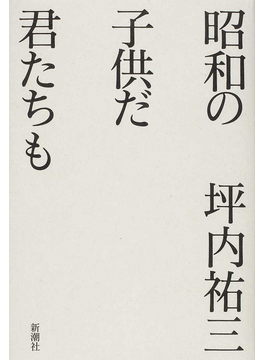 昭和の 坪内祐三
子供だ
君たちも
新潮社